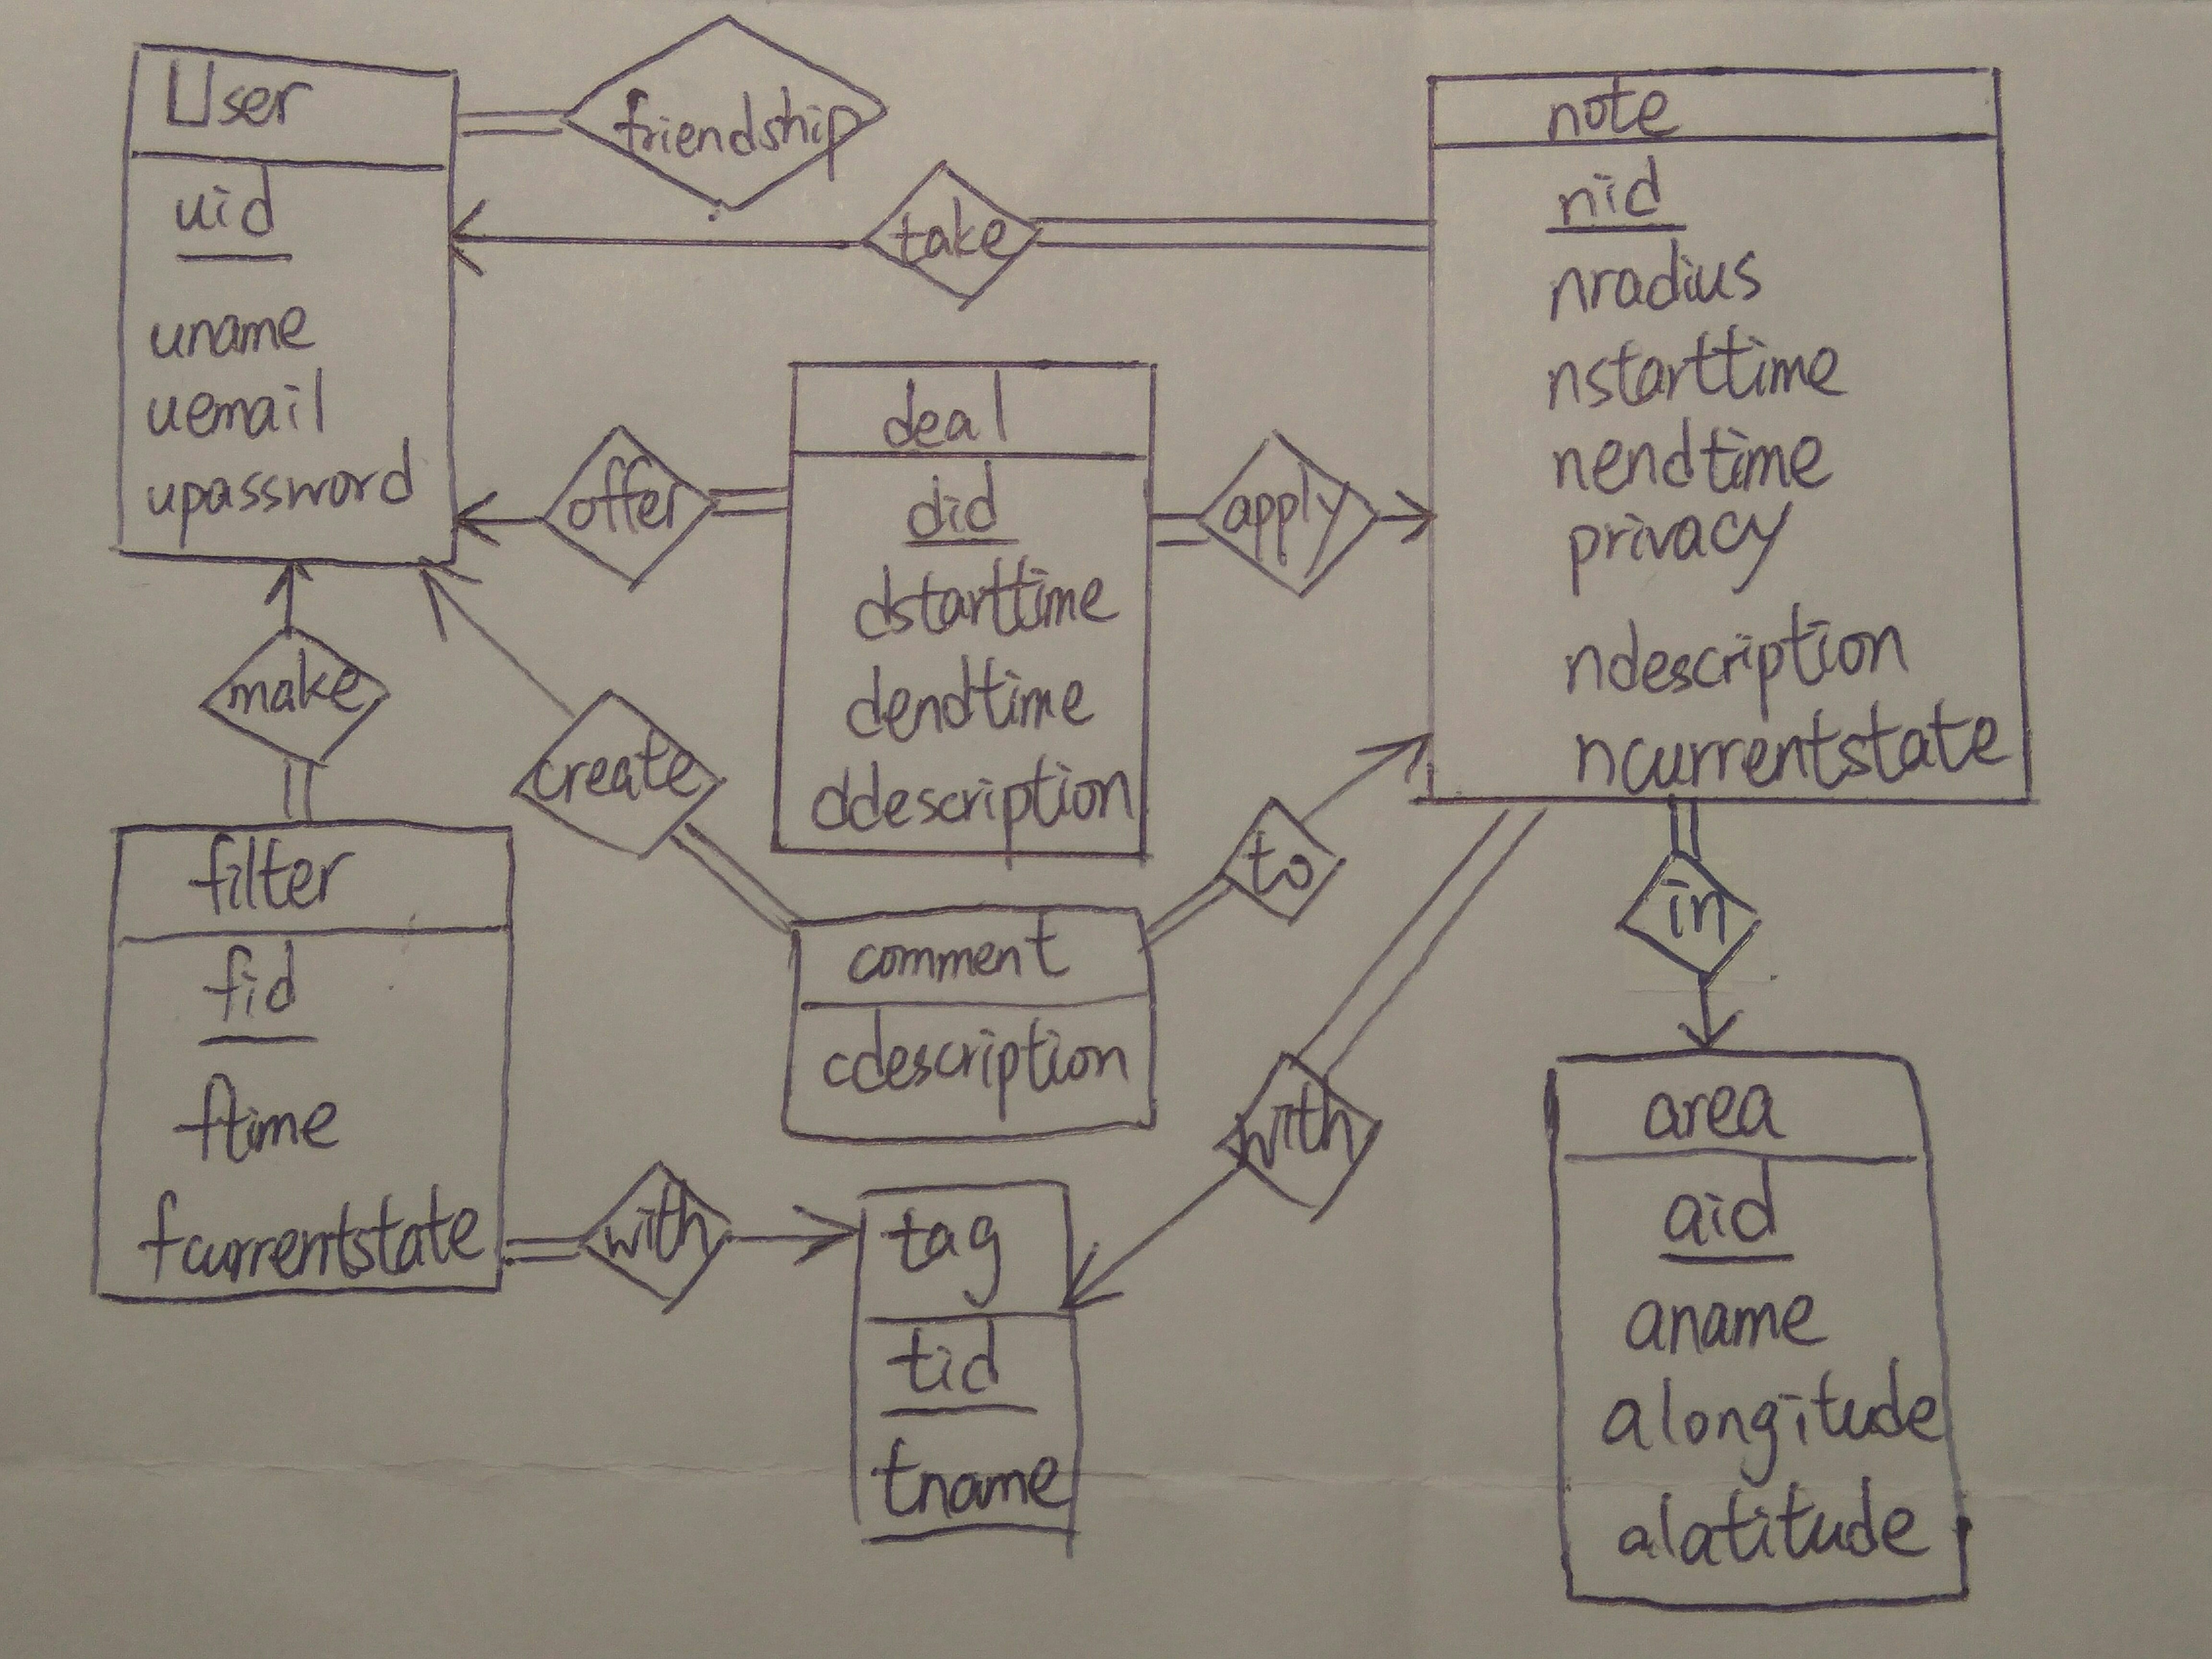 User
uid
uname
uemail
upassword
friendship
take
note
nid
nradius
nstarttime
nendtime
privacy
ndescription
ncurrentstate
offer
deal
did
dstarttime
dendtime
ddescription
apply
make
create
to
in
filter
fid
ftime
fcurrentstate
comment
cdescription
with
with
tag
tid
tname
area
aid
aname
alongitude
alatitude